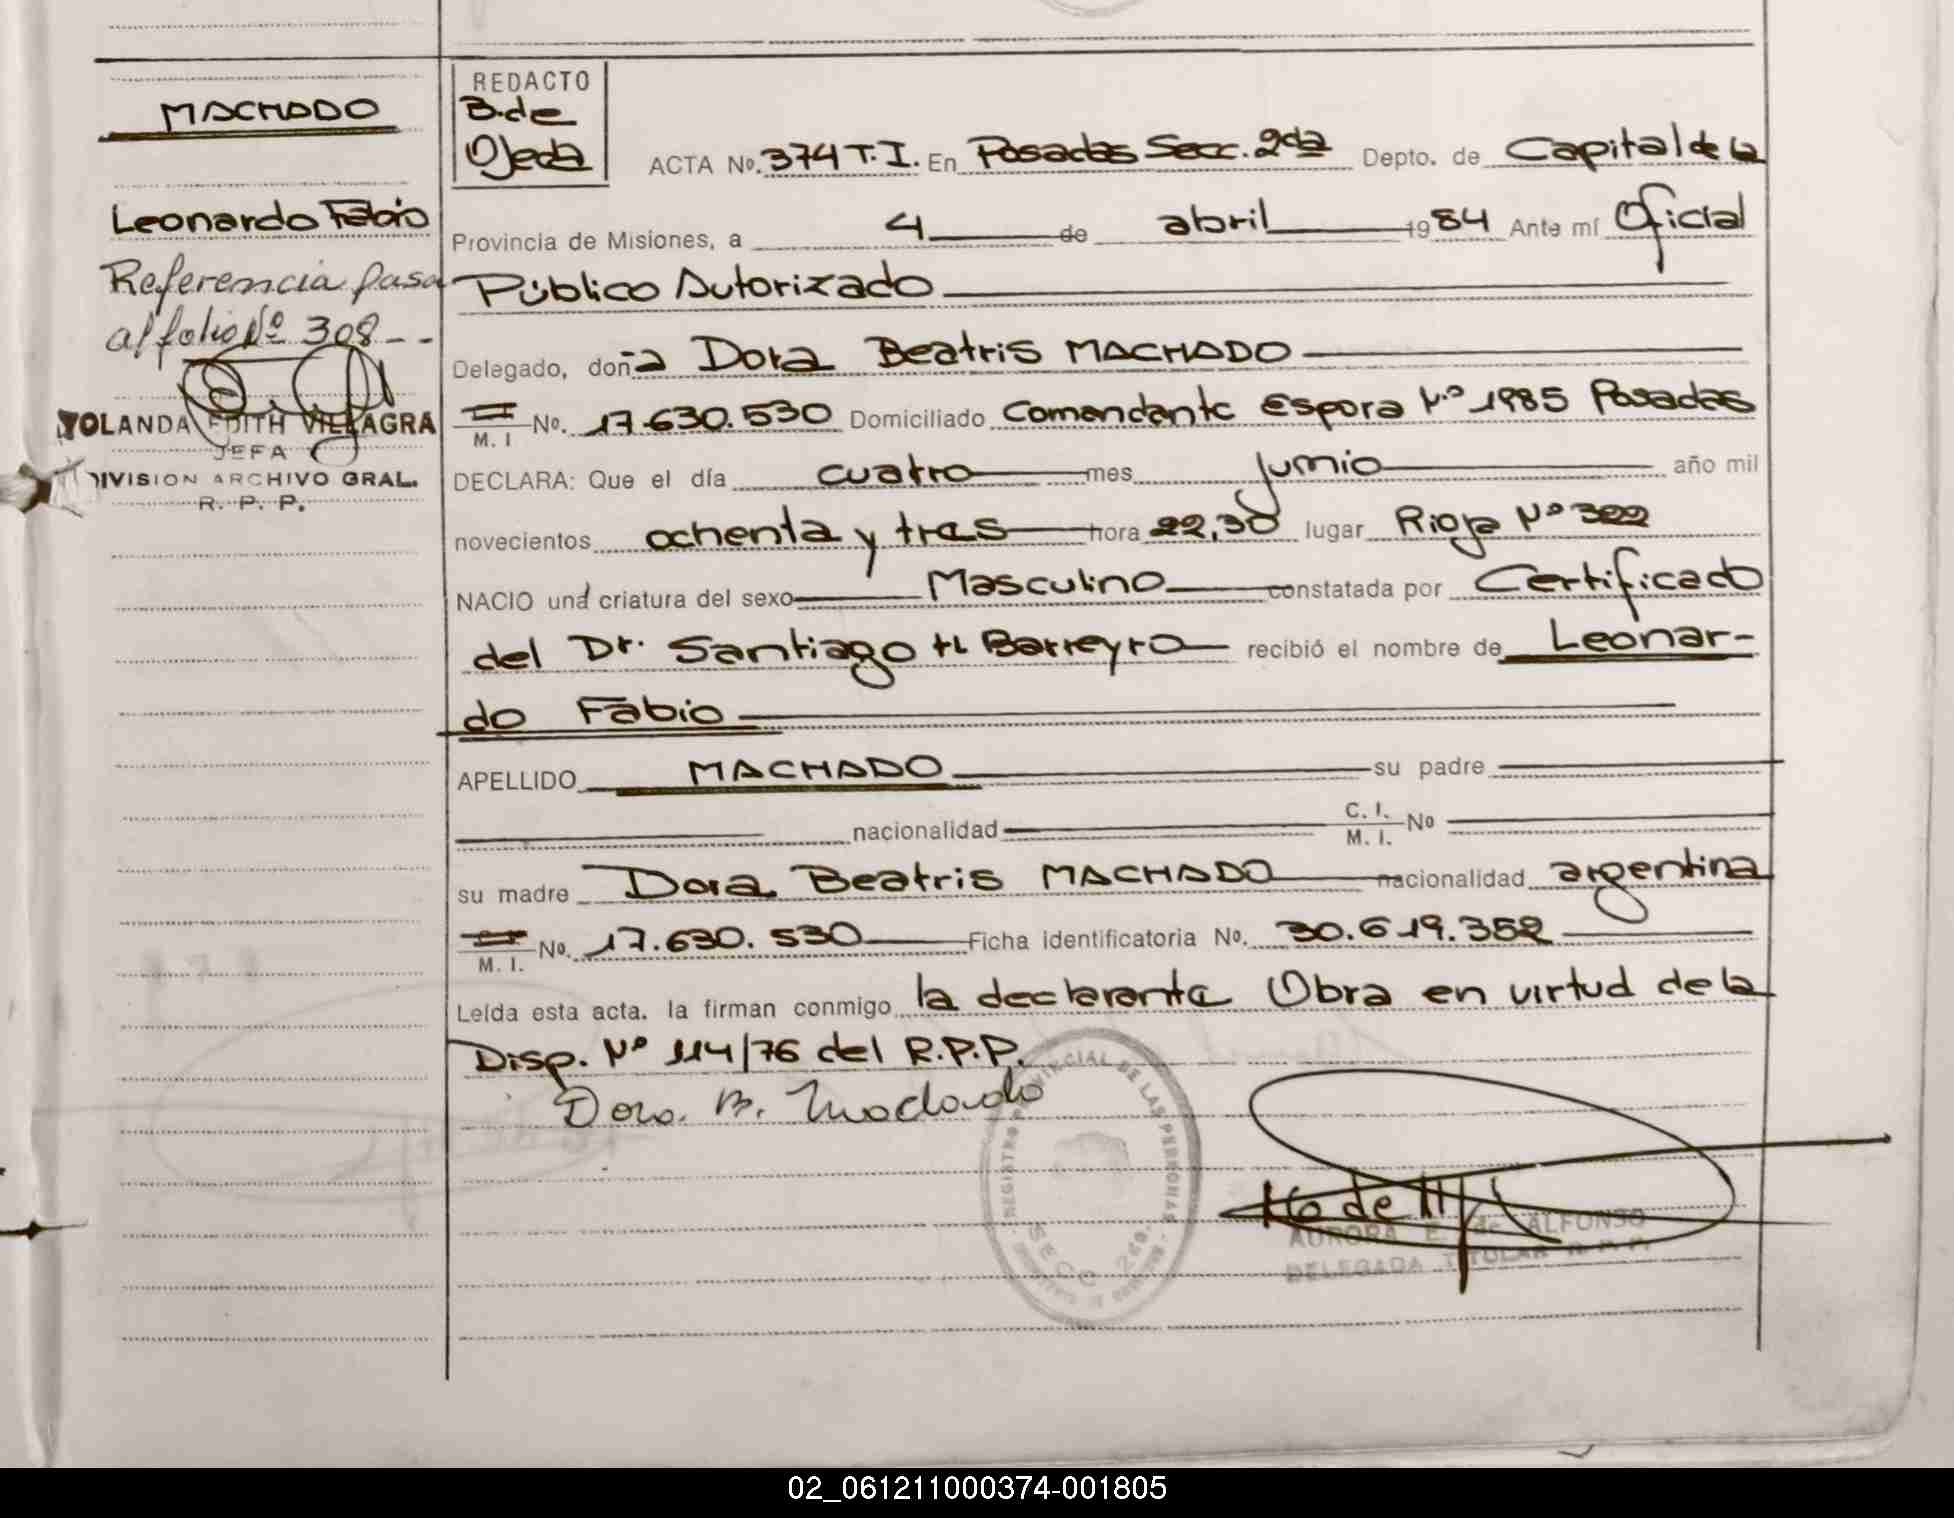 MACHADO
Leonardo Fabio
Referencia pasa
al folio Nº 308 --
YOLANDA EDITH VILLAGRA
JEFA
DIVISION ARCHIVO GRAL.
R. P. P.
REDACTO
B. de
Ojeda
ACTA No. 374 T. I. En Posadas Secc. 2da Depto. de Capital de la
Provincia de Misiones, a 4 de abril 1984 Ante mí Oficial
Público Autorizado
Delegado, doña Dora Beatris MACHADO
M. I No. 17.630.530 Domiciliado Comandante Espora Nº 1985 Posadas
DECLARA: Que el día cuatro mes junio año mil
novecientos ochenta y tres hora 22,30 lugar Rioja Nº 322
NACIO una criatura del sexo Masculino constatada por Certificado
del Dr. Santiago H Barreyro recibió el nombre de Leonar-
do Fabio
APELLIDO MACHADO su padre
nacionalidad C. I. M. I. No
su madre Dora Beatris MACHADO nacionalidad argentina
M. I. No. 17.630.530 Ficha identificatoria No. 30.619.352
Leída esta acta. la firman conmigo la declarante Obra en virtud de la
Disp. Nº 114/76 del R.P.P.
Dora B. Machado
REGISTRO PROVINCIAL DE LAS PERSONAS
SECC 2da.
AURORA E. de ALFONSO
DELEGADA TITULAR R. P. P.
02_061211000374-001805